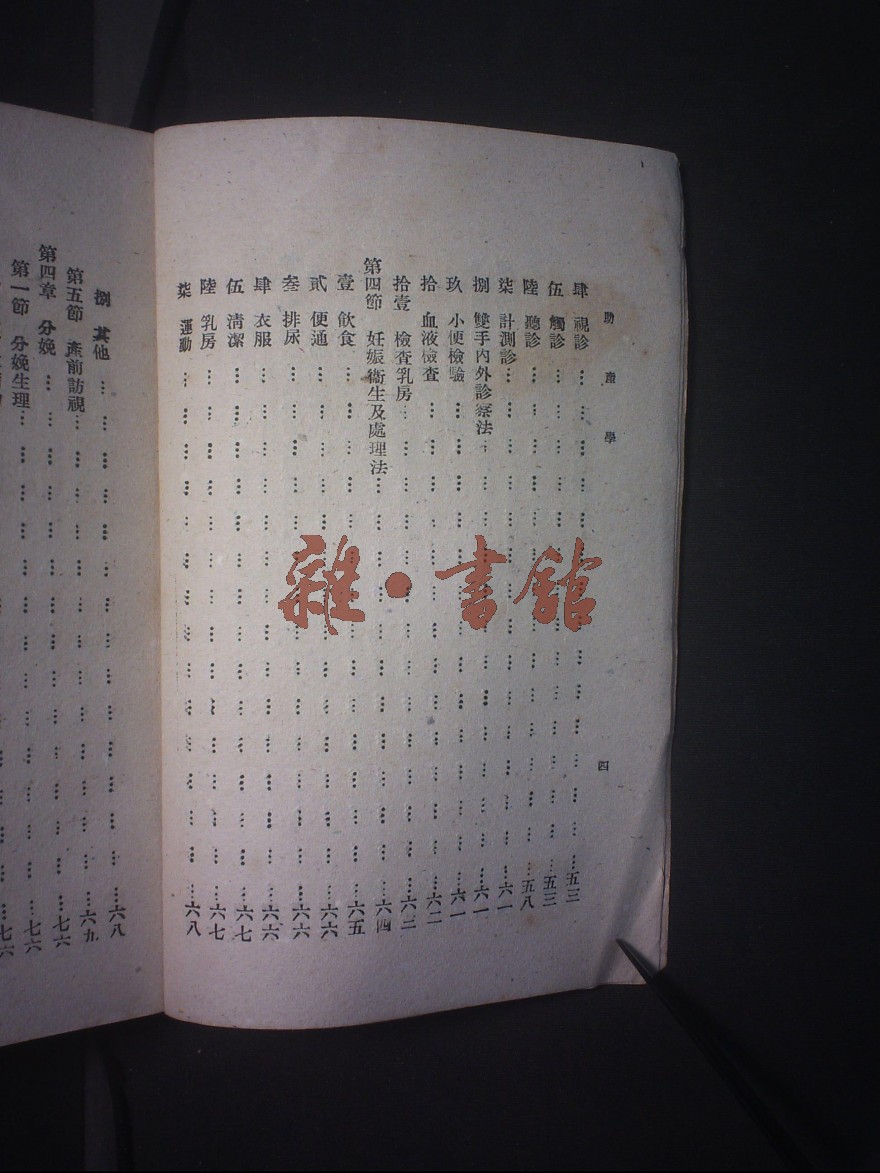 助產學
四
肆 視診……五三
伍 觸診……五三
陸 聽診……五八
柒 計測診……六一
捌 雙手內外診察法……六一
玖 小便檢驗……六一
拾 血液檢查……六二
拾壹 檢查乳房……六三
第四節 妊娠衞生及處理法……六四
壹 飲食……六五
貳 便通……六六
叁 排尿……六六
肆 衣服……六六
伍 清潔……六七
陸 乳房……六七
柒 運動……六八
捌 其他……六八
第五節 產前訪視……六九
第四章 分娩……七六
第一節 分娩生理……七六
七六
雜·書館